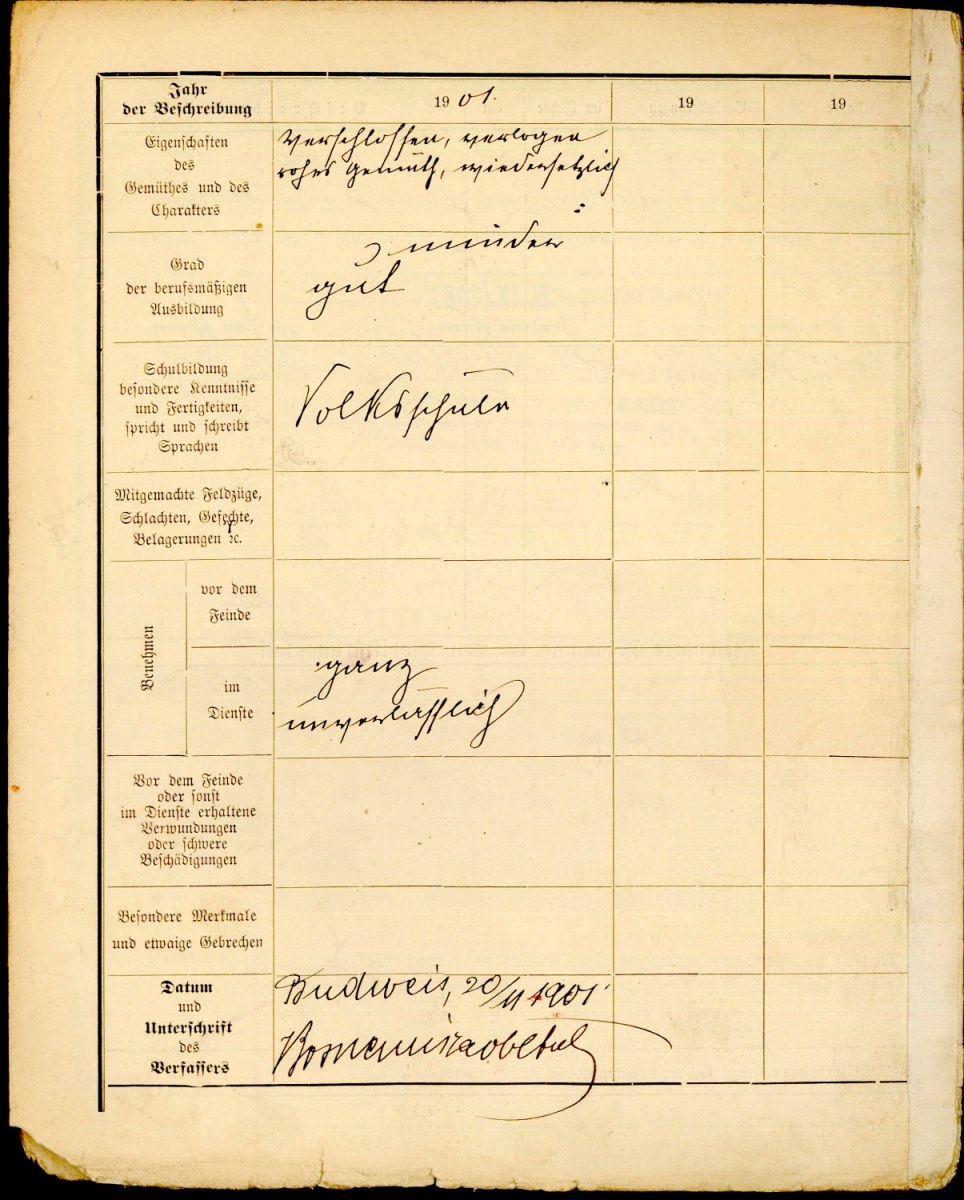 Jahr
der Beschreibung
1901.
19
19
Eigenschaften
des
Gemüthes und des
Charakters
Verschlossen, verlogen
rohes Gemüth, wiedersetzlich
Grad
der berufsmäßigen
Ausbildung
minder
gut
Schulbildung
besondere Kenntnisse
und Fertigkeiten,
spricht und schreibt
Sprachen
Volksschule
Mitgemachte Feldzüge,
Schlachten, Gefechte,
Belagerungen ꝛc.
Benehmen
vor dem
Feinde
im
Dienste
ganz
unverlässlich
Vor dem Feinde
oder sonst
im Dienste erhaltene
Verwundungen
oder schwere
Beschädigungen
Besondere Merkmale
und etwaige Gebrechen
Datum
und
Unterschrift
des
Verfassers
Budweis, 20/11 1901